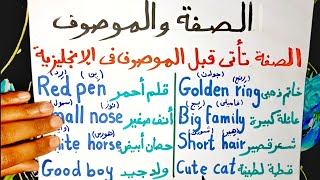 الصفة والموصوف
الصفة تأتى قبل الموصوف فى الانجليزية
(رِد) (بِن) (جولدن) (رينج)
Red pen قلم أحمر Golden ring خاتم ذهبى
(نوز) (فاميلى) (بيج)
mall nose أنف صغير Big family عائلة كبيرة
(هورس) (هير) (شورت)
ite horse حصان أبيض Short hair شعر قصير
Good boy ولد جيد Cute cat قطة لطيفة